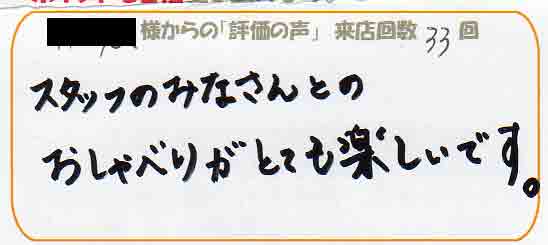 様からの「評価の声」 来店回数 33 回
スタッフのみなさんとの
おしゃべりがとても楽しいです。